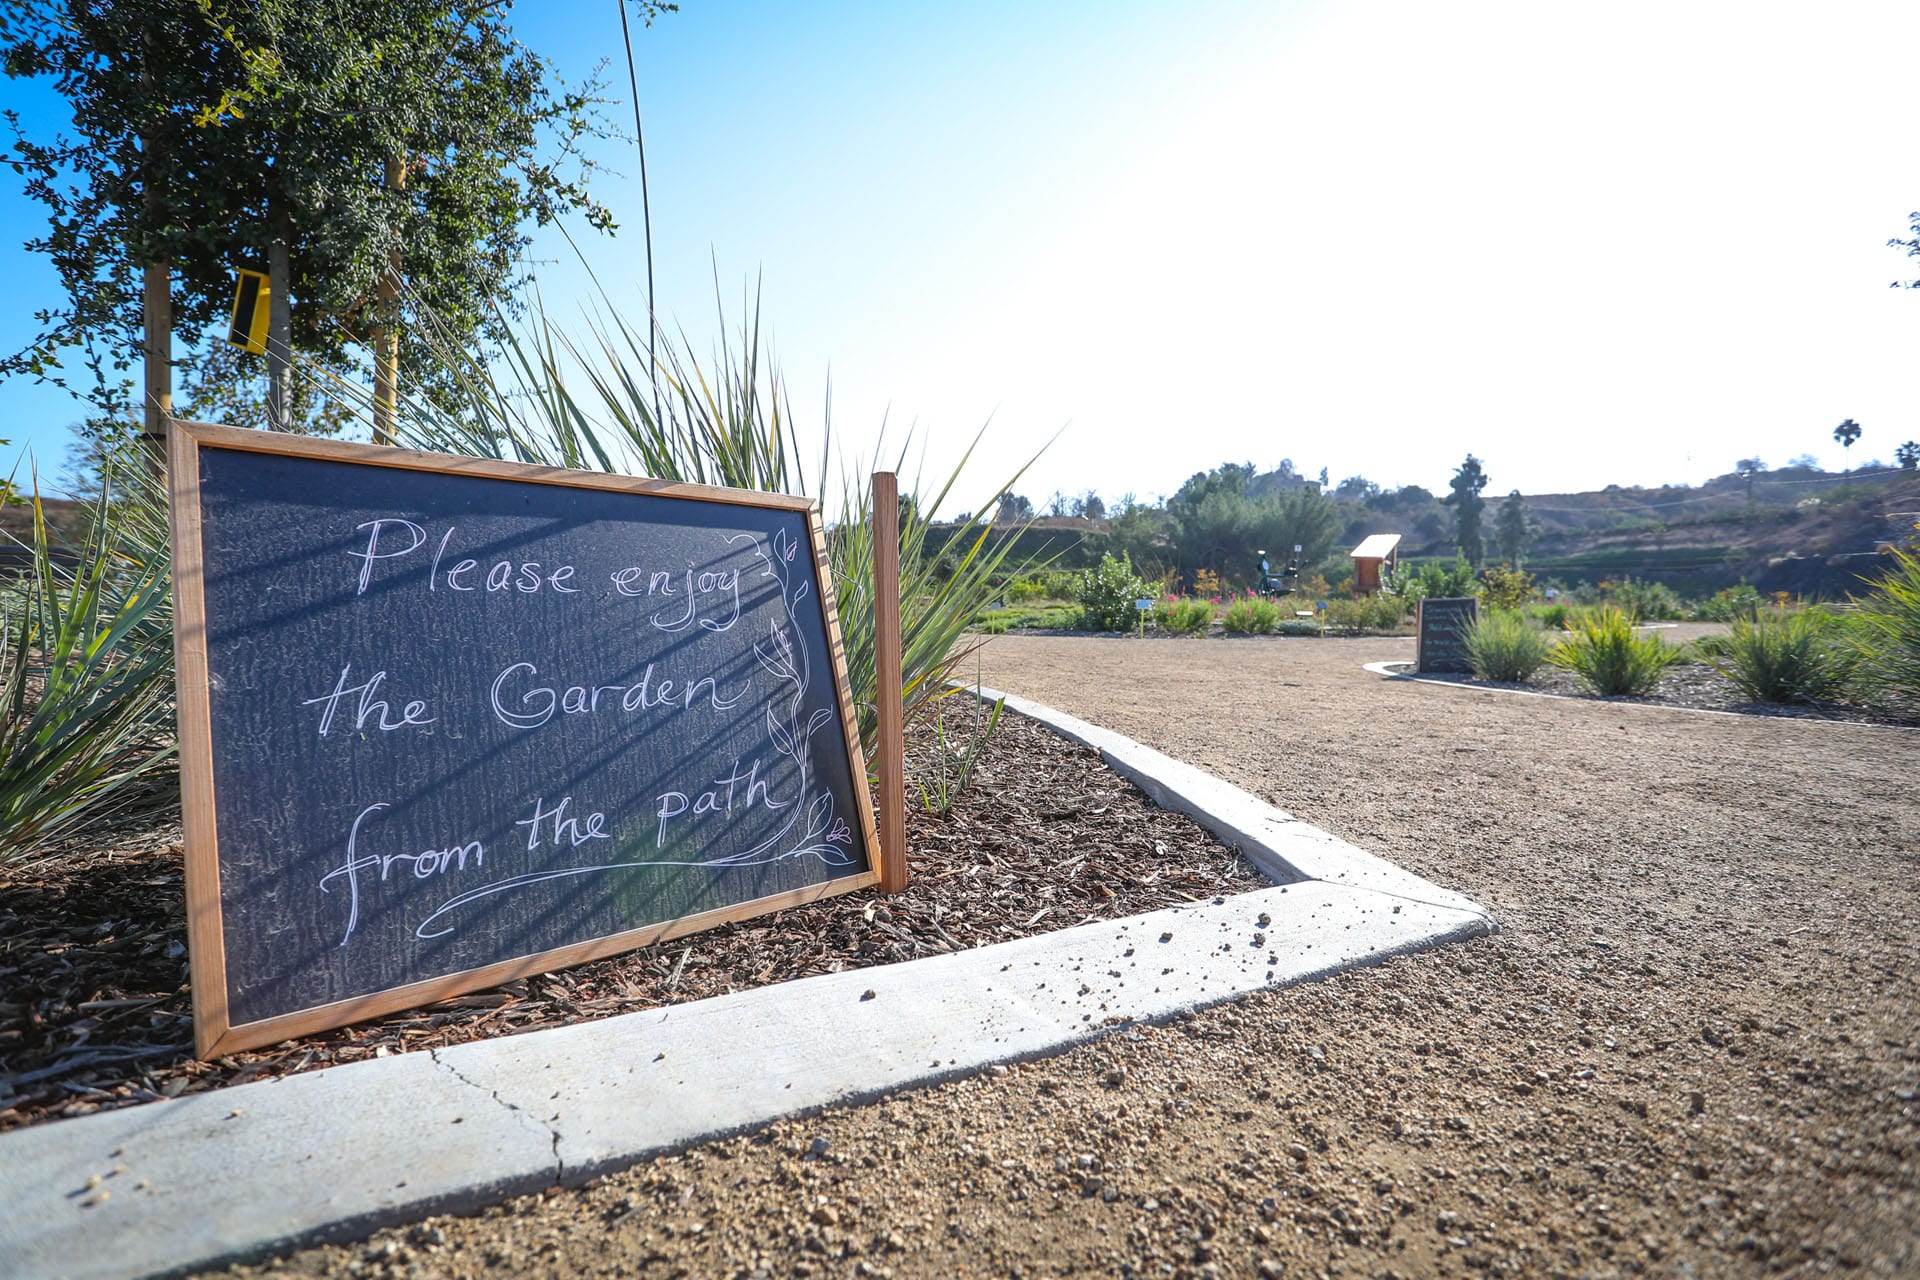 Please enjoy
the Garden
from the path